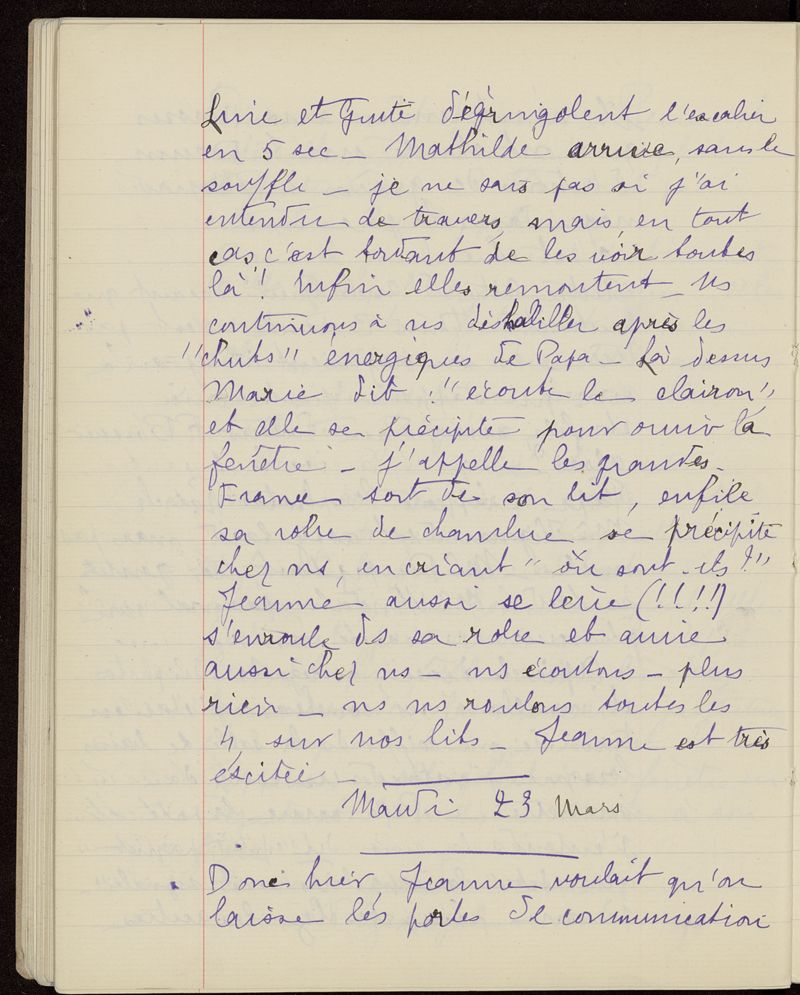 et Guite dégringolent l'escalier
en 5 sec _ Mathilde arrive, sans le
souffle _ je ne sais pas si j'ai
entendu de travers, mais, en tout
cas, c'est tordant de les voir toutes
là ! Enfin elles remontent _ Ns
continuons à ns déshabiller après les
"chuts" énergiques de Papa _ Là dessus
Marie dit : "écoute le clairon"
et elle se précipite pour ouvrir la
fenêtre _ j'appelle les grandes _
France sort de son lit, enfile
sa robe de chambre se précipite
chez ns, en criant "où sont-ils ?"
Jeanne aussi se lève (!!!!)
s'enroule ds sa robe et arrive
aussi chez ns _ ns écoutons _ plus
rien _ ns ns roulons toutes les
4, sur nos lits _ Jeanne est très
excitée _
Mardi 23 Mars
Donc hier, Jeanne voulait qu'on
laisse les portes de communication